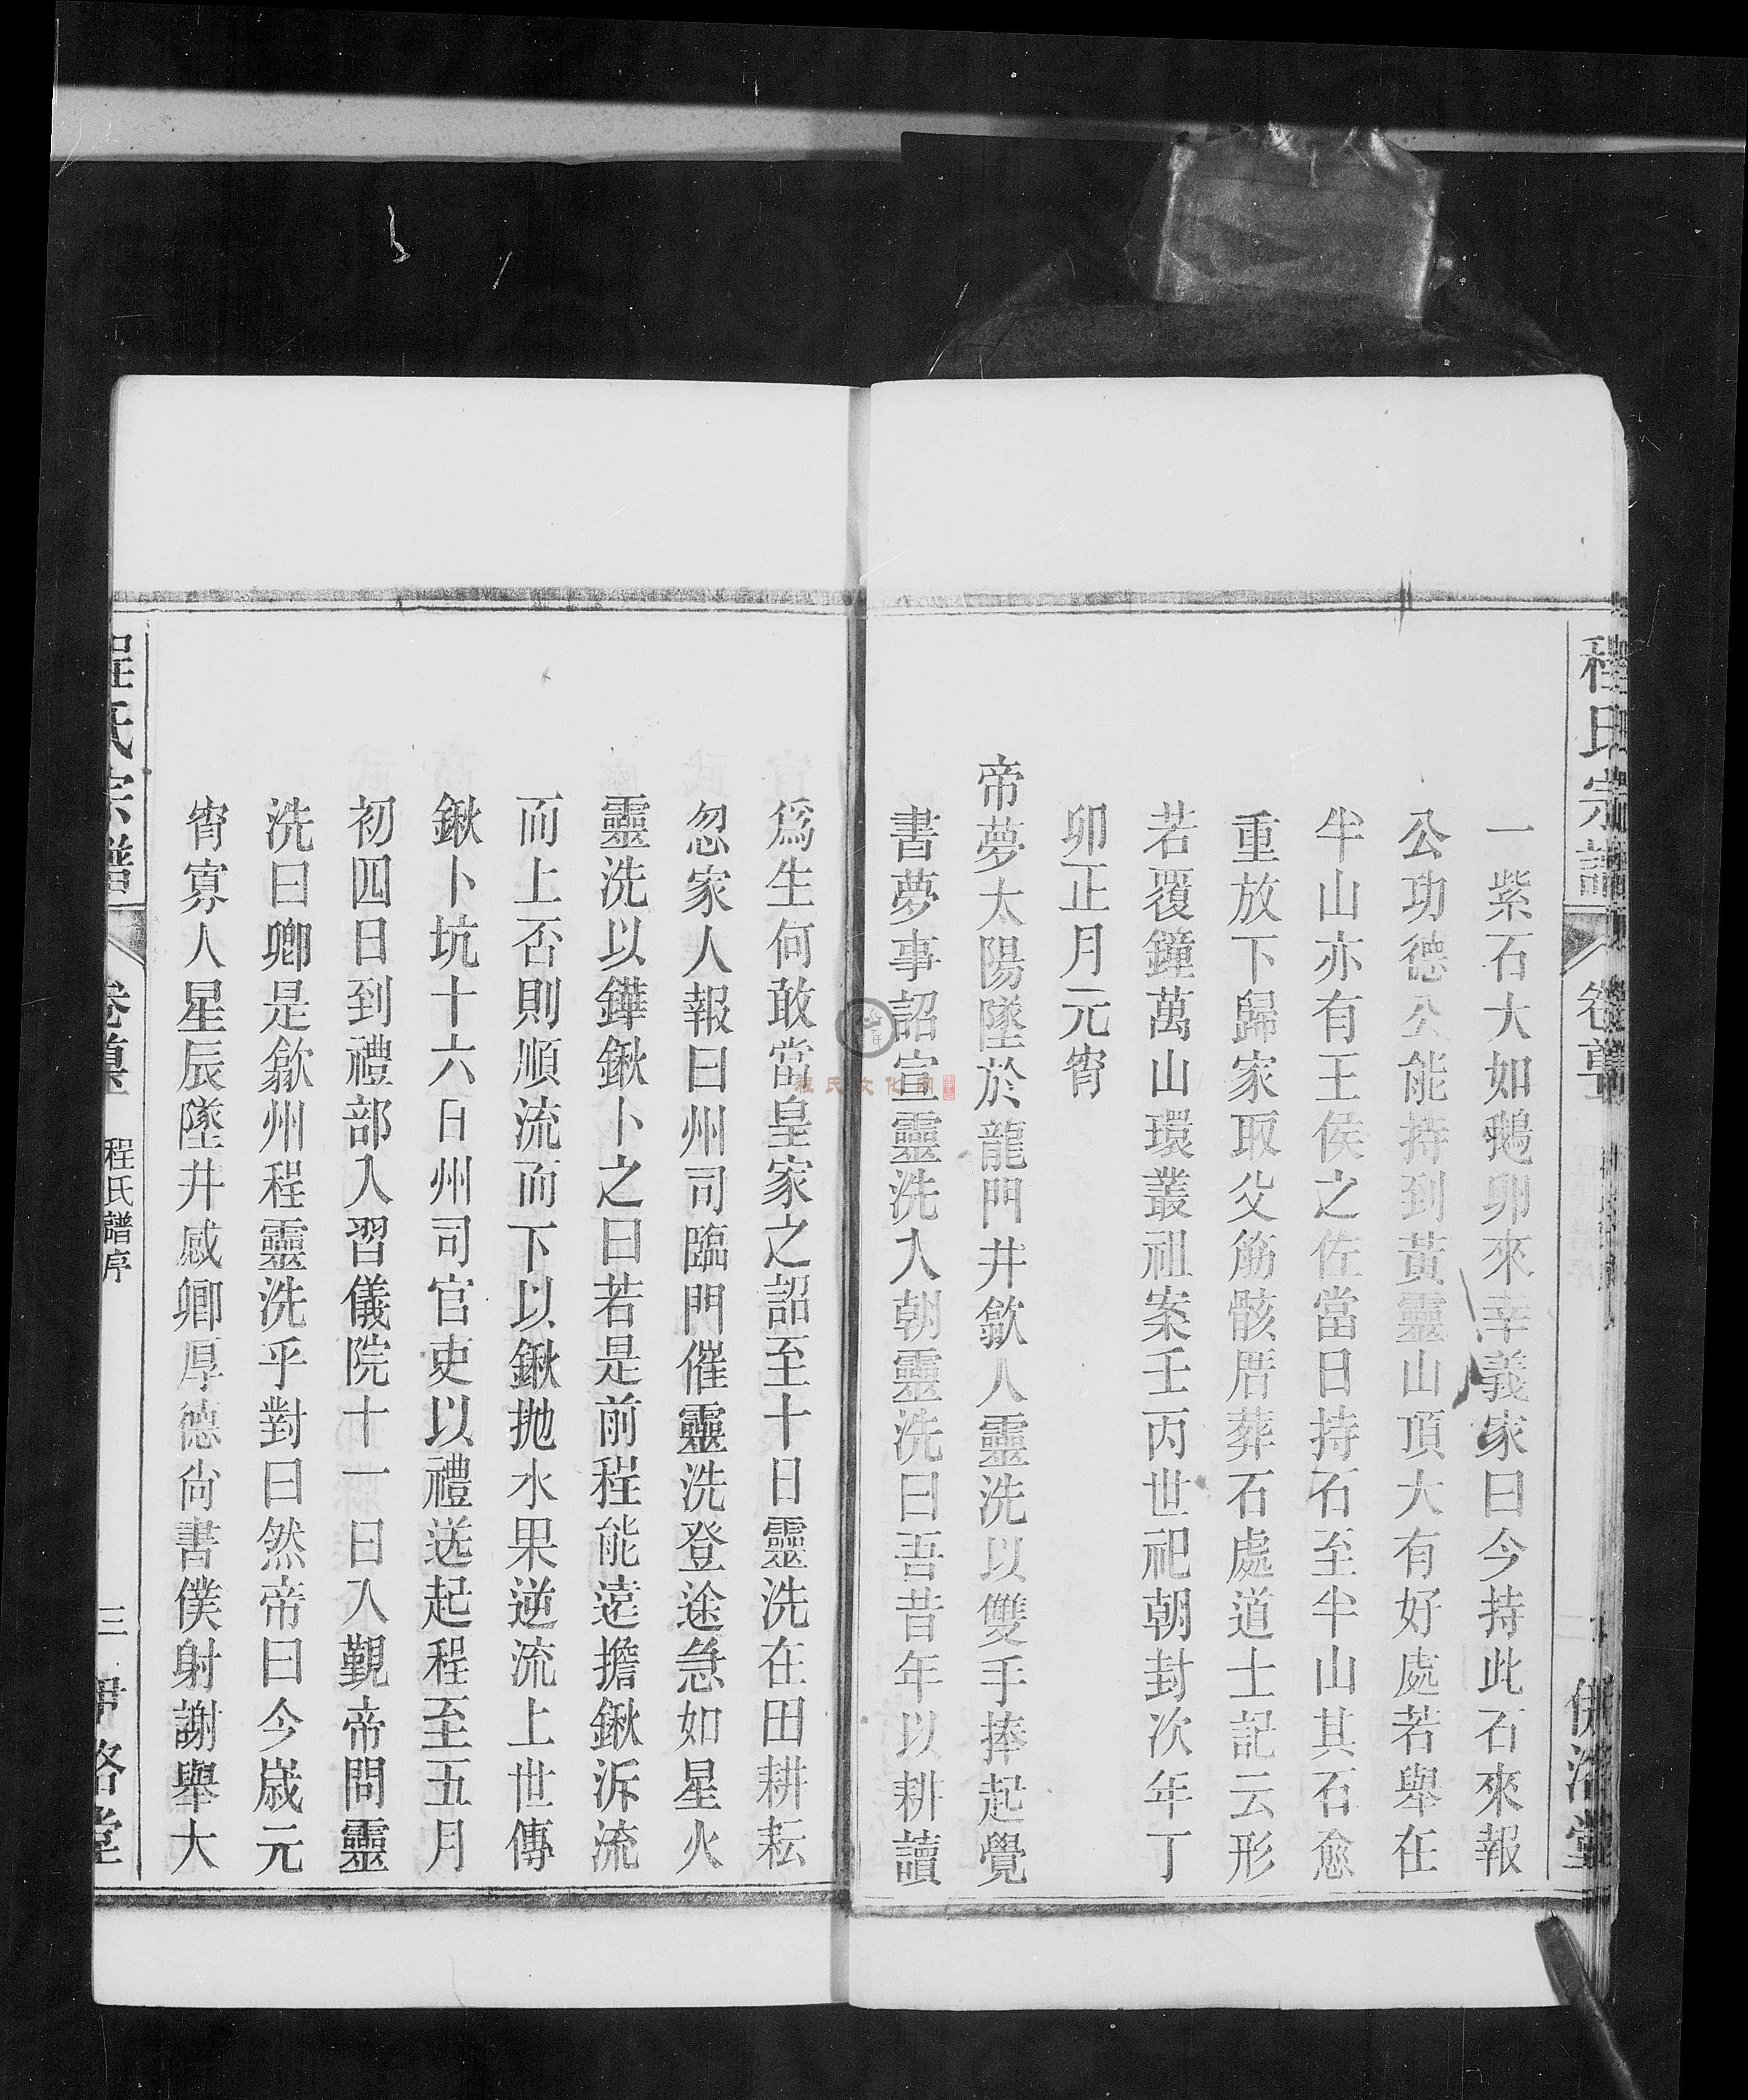 程氏宗譜
卷首
一紫石大如鵝卵來幸義家曰今持此石來報
公功德公能持到黃靈山頂大有好處若舉在
半山亦有王侯之佐當日持石至半山其石愈
重放下歸家取父筋骸厝葬石處道士記云形
若覆鐘萬山環叢祖案壬丙世祀朝封次年丁
卯正月元宵
帝夢太陽墜於龍門井歙人靈洗以雙手捧起覺
書夢事詔宣靈洗入朝靈洗曰吾昔年以耕讀
為生何敢當皇家之詔至十日靈洗在田耕耘
忽家人報曰州司臨門催靈洗登途急如星火
靈洗以鏵鍬卜之曰若是前程能遠擔鍬泝流
而上否則順流而下以鍬拋水果逆流上世傳
鍬卜坑十六日州司官吏以禮送起程至五月
初四日到禮部入習儀院十一日入覲帝問靈
洗曰卿是歙州程靈洗乎對曰然帝曰今歲元
宵寡人星辰墜井感卿厚德尚書僕射謝舉大
程氏宗譜
卷首
程氏譜序
三